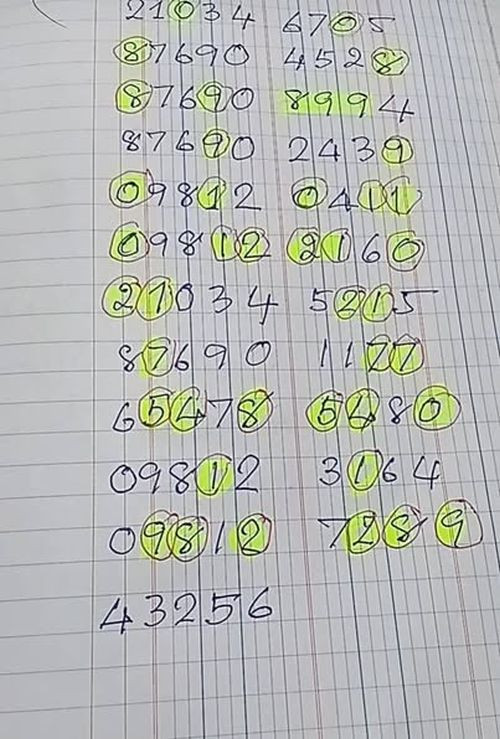 21034 6705
87690 4528
87690 8994
87690 2439
09812 0411
09812 2160
21034 5215
87690 1177
65478 5480
09812 3164
09812 7289
43256